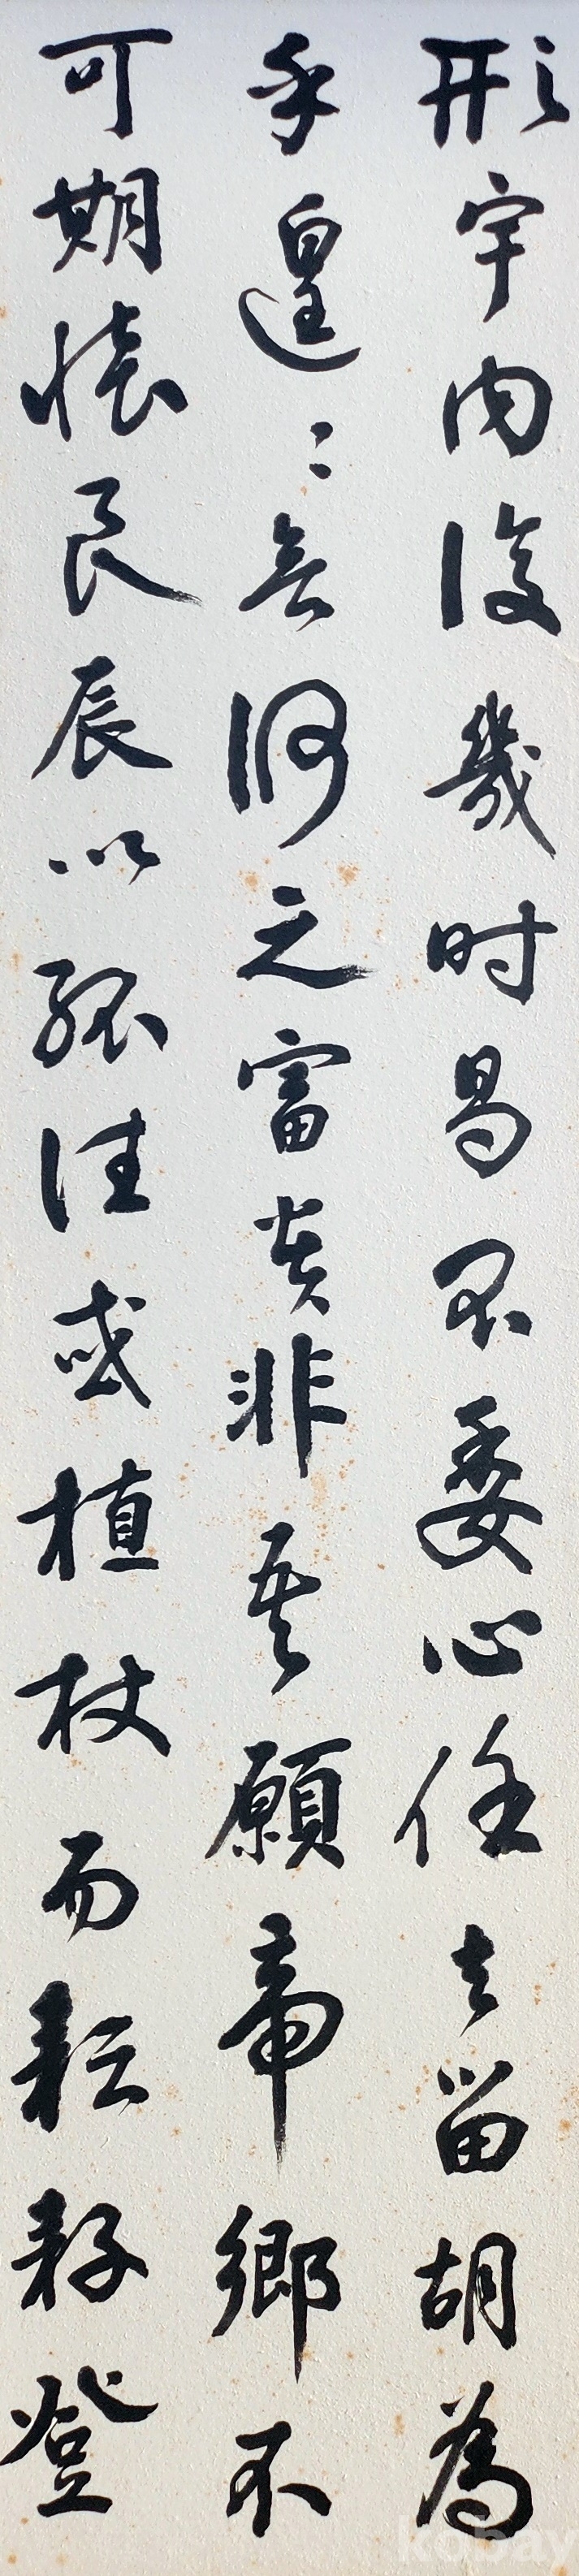 形宇內復幾时曷不委心任去留胡為
乎遑〻何之富貴非吾願帝鄉不
可期懷良辰以孤往或植杖而耘耔登
kobay